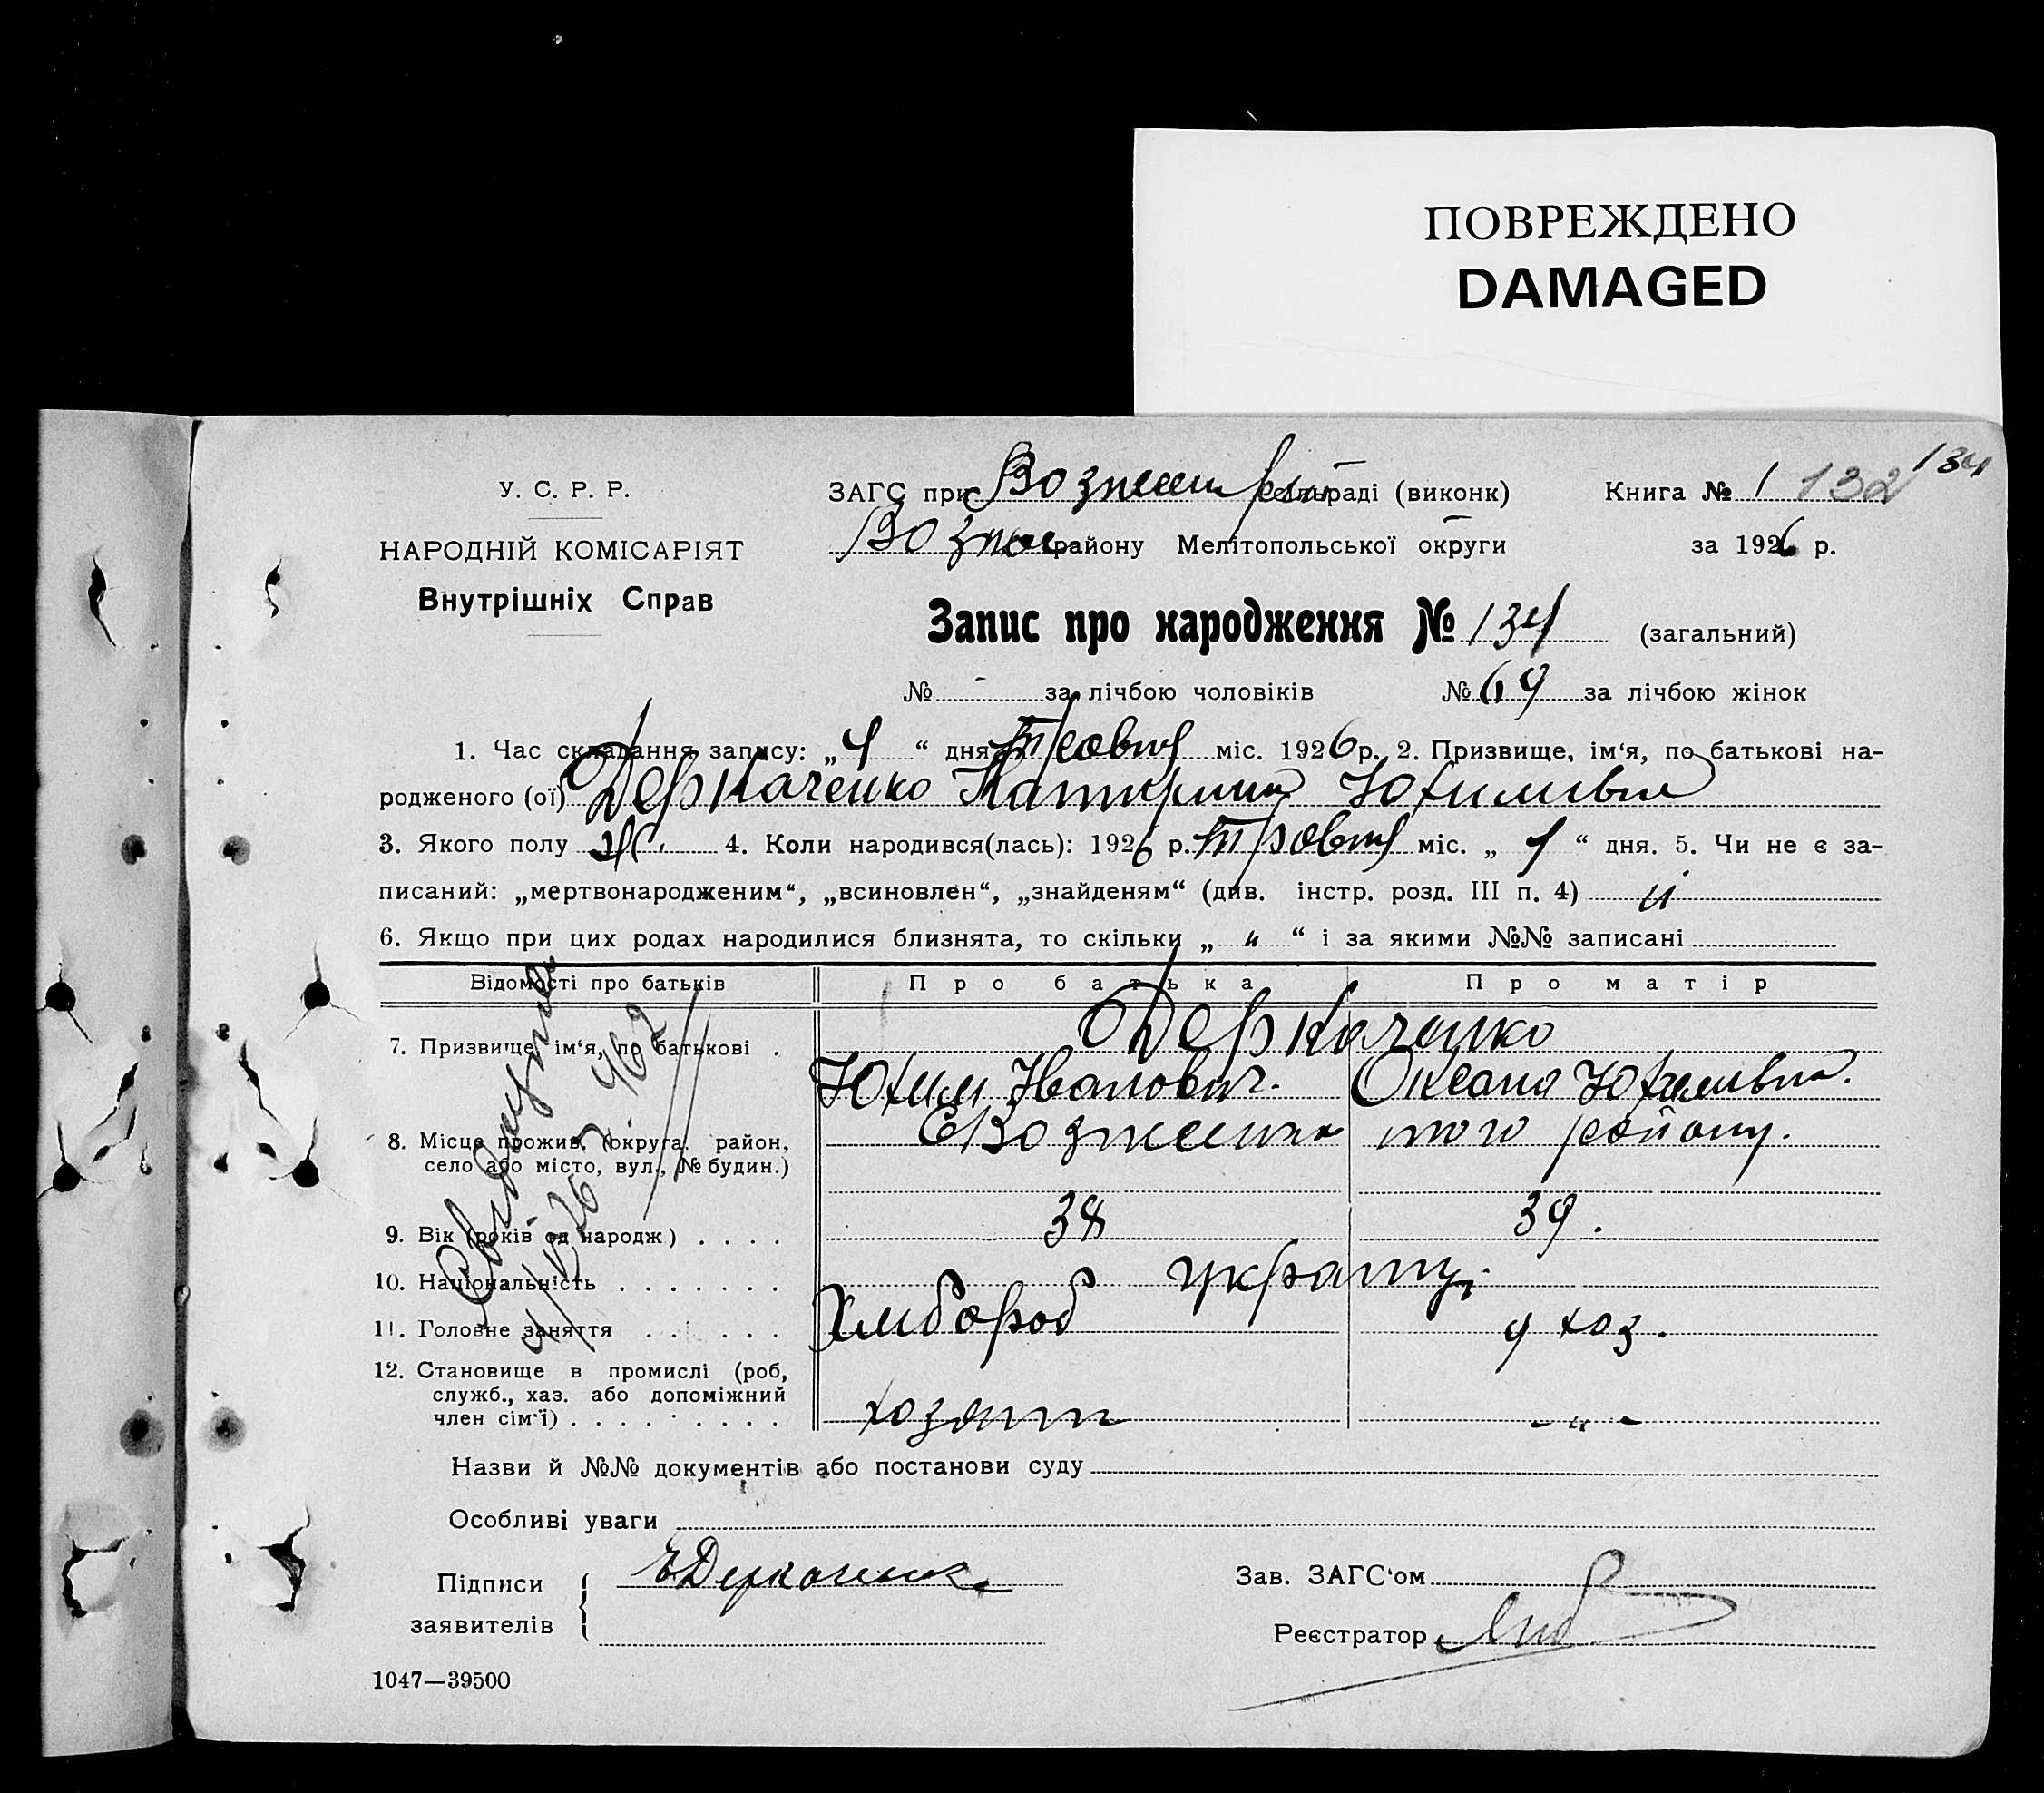 ПОВРЕЖДЕНО
DAMAGED
У. С. Р. Р.
НАРОДНІЙ КОМІСАРІЯТ
Внутрішніх Справ
ЗАГС при Вознесен сельраді (виконк)
Возне району Мелітопольської округи
Книга № 1 132 134
за 1926 р.
Запис про народження № 134 (загальний)
№ - за лічбою чоловіків № 69 за лічбою жінок
1. Час складання запису: „4“ дня травня міс. 1926 р. 2. Призвище, ім‘я, по батькові на-
родженого (ої) Деркаченко Катерина Юхимівна
3. Якого полу ж. 4. Коли народився(лась): 1926 р. травня міс. „1“ дня. 5. Чи не є за-
писаний: „мертвонародженим“, „всиновлен“, „знайденям“ (див. інстр. розд. III п. 4) н
6. Якщо при цих родах народилися близнята, то скільки „ н “ і за якими №№ записані
Відомості про батьків Про батька Про матір
Деркаченко
7. Призвище, ім‘я, по батькові . Юхим Іванович. Оксана Юхимівна.
8. Місце прожив. (округа, район, село або місто, вул., № будин.) с Вознесенка того району.
9. Вік (років од народж) . . . . 38 39.
10. Національність . . . . . . . українці
11. Головне заняття . . . . . . Хлибороб д хоз.
12. Становище в промислі (роб, служб., хаз. або допоміжний член сім‘ї) . . . . . . . . . хозяин - „ -
462
Назви й №№ документів або постанови суду
Особливі уваги
Підписи заявителів Деркаченко
Зав. ЗАГС‘ом
Реєстратор
1047—39500